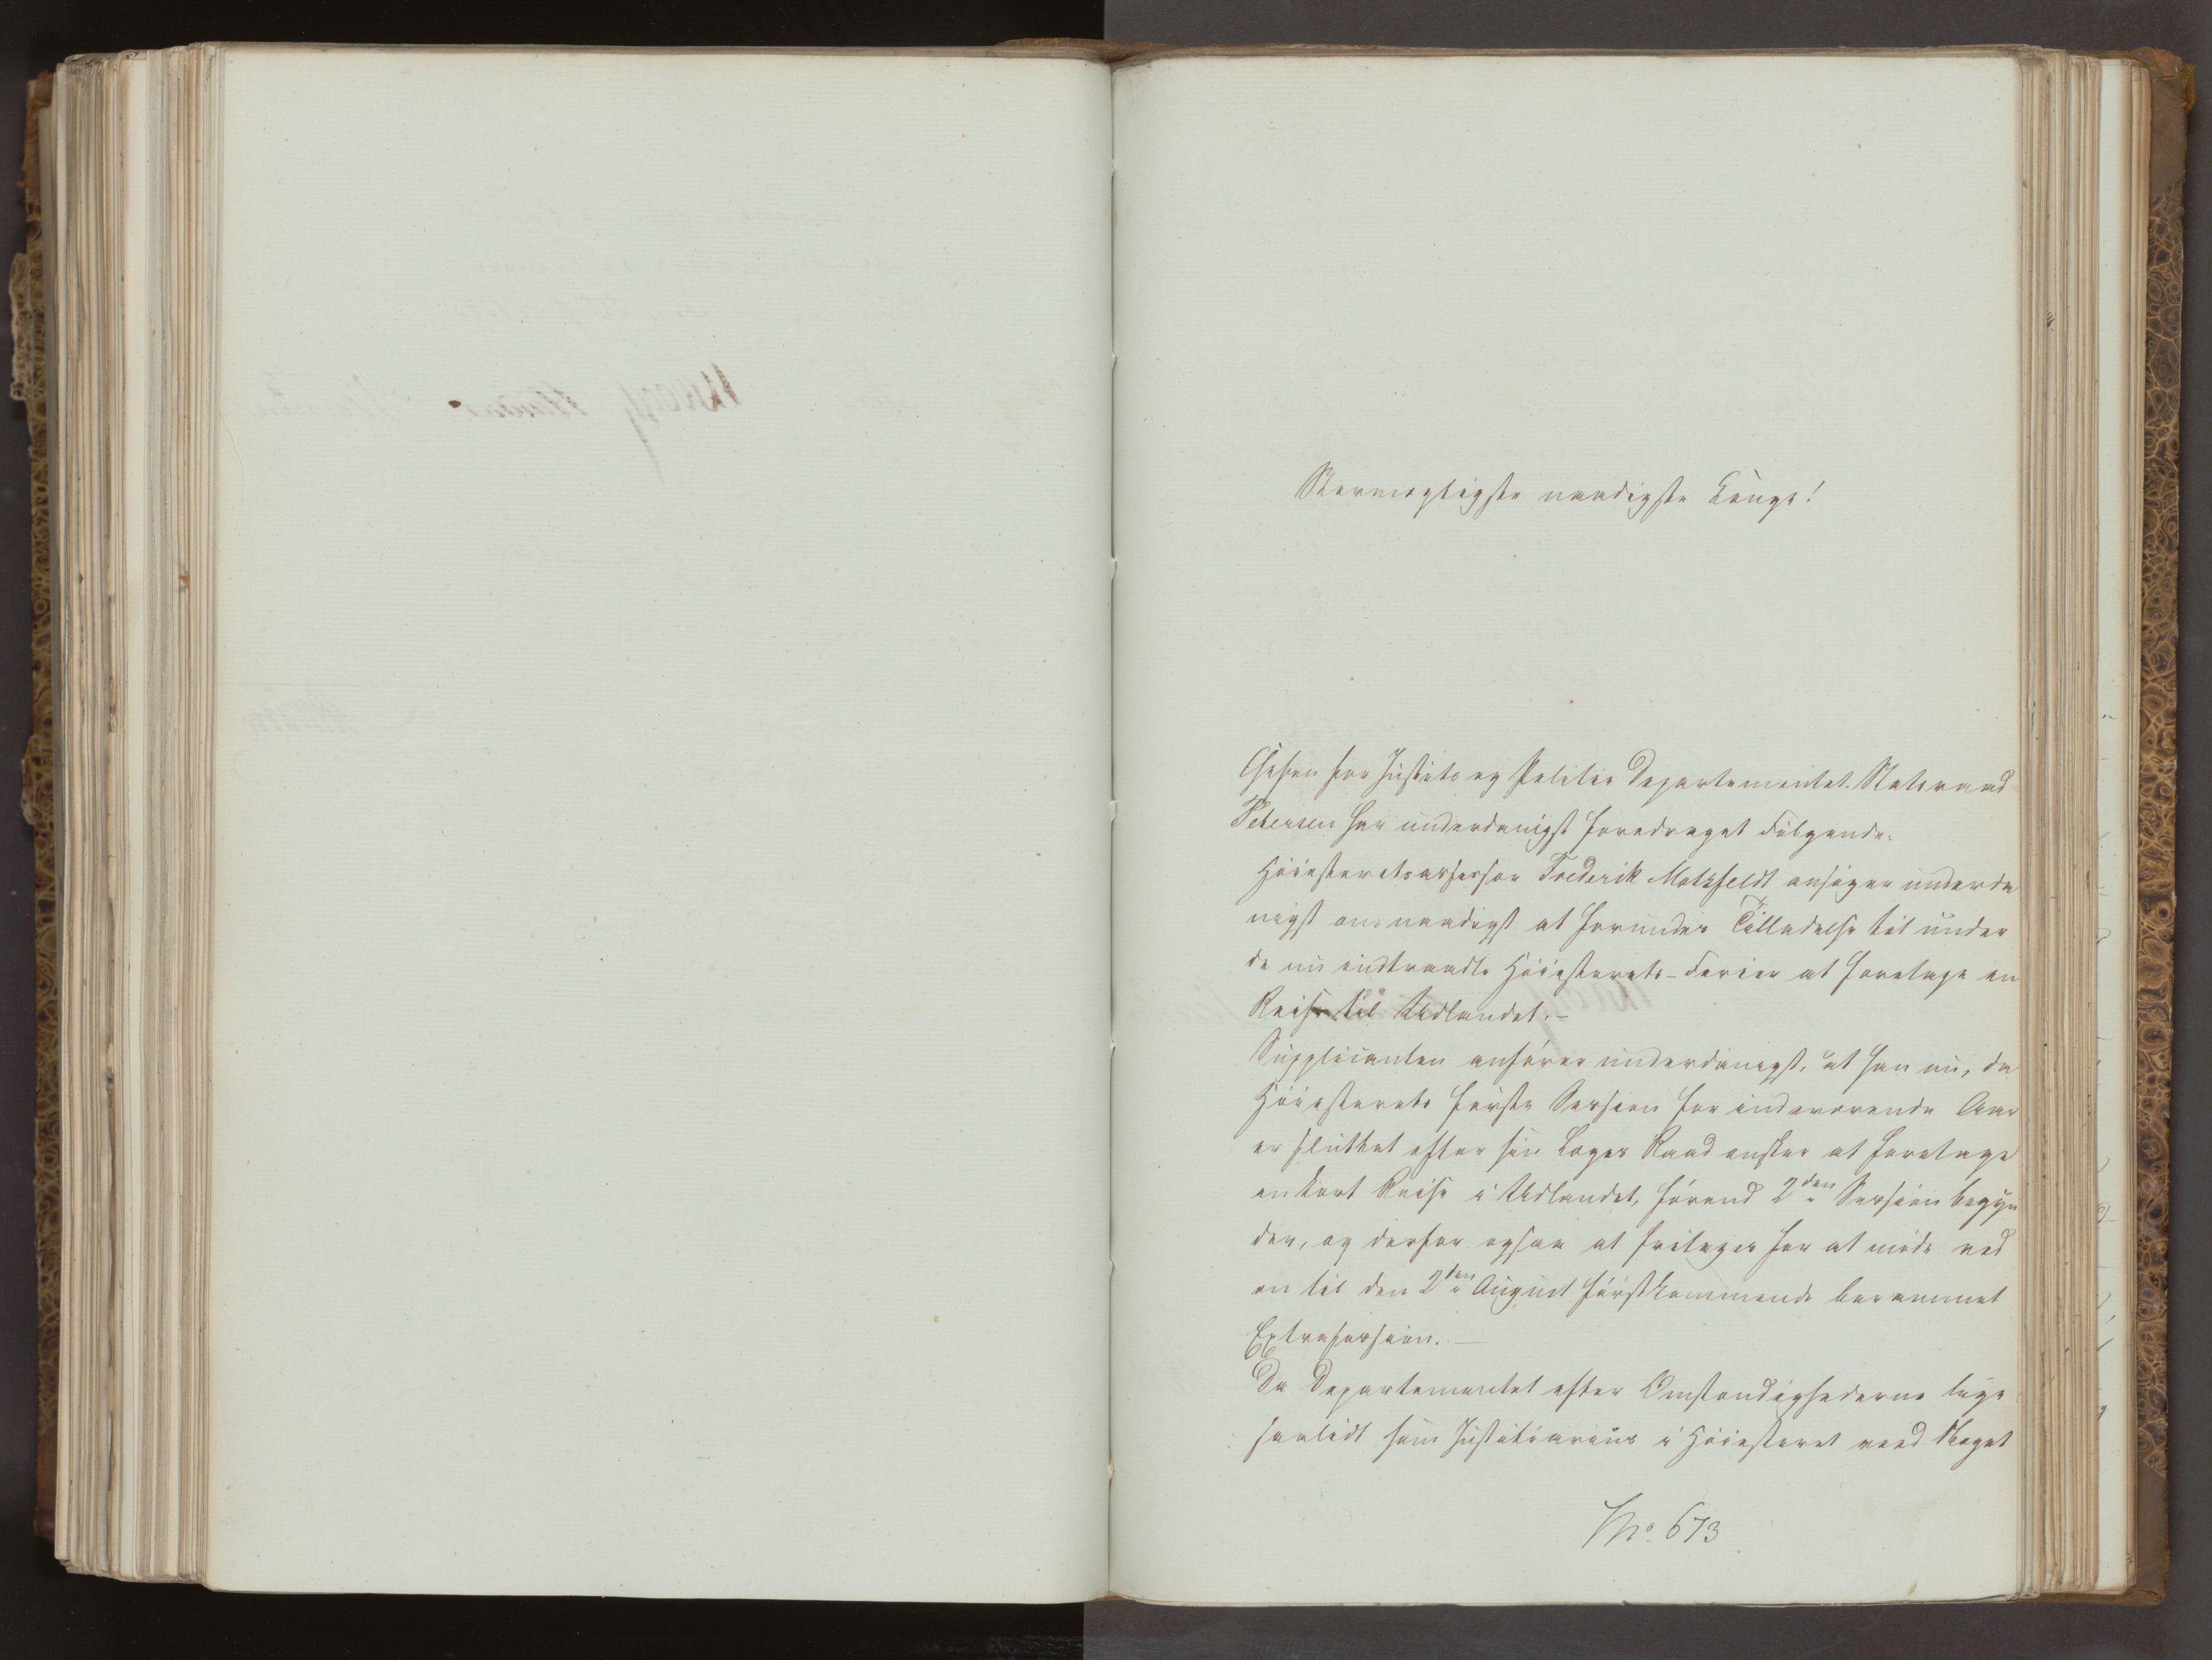 Stormægtigste naadigste Konge!
Chefen for Justits og Politie Departementet Statsraad
Petersen har underdanigst foredraget Følgende:
Høiesterets assessor Frederik Motzfeldt ansøger underda
nigst om naadigst at forundes Tilladelse til under
de nu indtraadte Høiesterets-Ferier at foretage en
Reise til Udlandet.-
Supplicanten anfører underdanigst, at han nu, da
Høiesterets første Session for indeværende Aar
er sluttet efter sin Læges Raad ønsker at foretage
en kort Reise i Udlandet, førend 2den Session begyn
der, og derfor ogsaa at fritages for at møde ved
en til den 2den August førstkommende berammet
Extrasession. -
Da Departementet efter Omstændighederne lige
saalidt som Justitiarius i Høiesteret veed Noget
No. 673